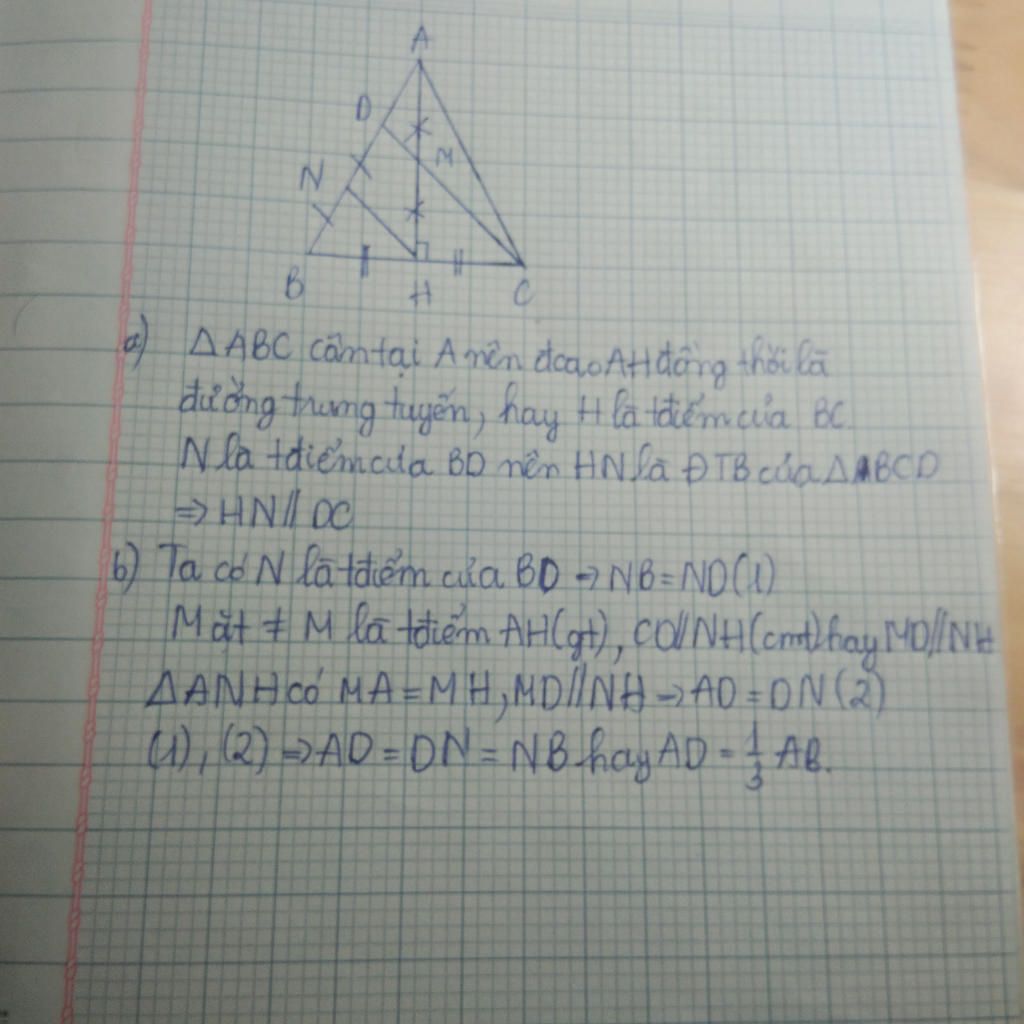 A
D
M
N
B
H
C
a) ΔABC cân tại A nên đcao AH đồng thời là
đường trung tuyến, hay H là tđiểm của BC.
N là tđiểm của BD nên HN là ĐTB của ΔBCD
⇒ HN // DC
b) Ta có N là tđiểm của BD → NB = ND (1)
Mặt ≠ M là tđiểm AH (gt), CD // NH (cmt) hay MD // NH
ΔANH có MA = MH, MD // NH → AD = DN (2)
(1), (2) ⇒ AD = DN = NB hay AD = 1/3 AB.